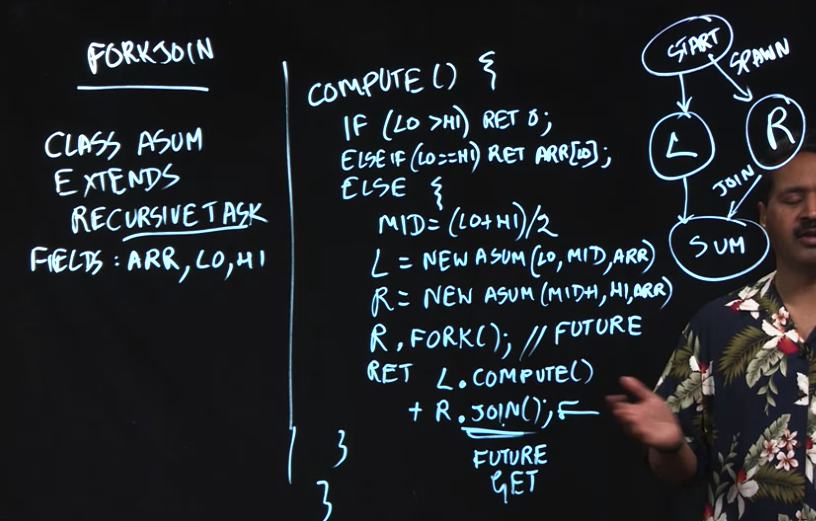 FORKJOIN
CLASS ASUM
EXTENDS
RECURSIVETASK
FIELDS : ARR, LO, HI
COMPUTE() {
IF (LO >HI) RET 0;
ELSEIF (LO==HI) RET ARR[LO];
ELSE {
MID=(LO+HI)/2
L = NEW ASUM(LO, MID, ARR)
R = NEW ASUM(MID+1, HI, ARR)
R. FORK(); // FUTURE
RET L.COMPUTE()
+ R.JOIN();
FUTURE
GET
}
}
START
SPAWN
L
R
JOIN
SUM